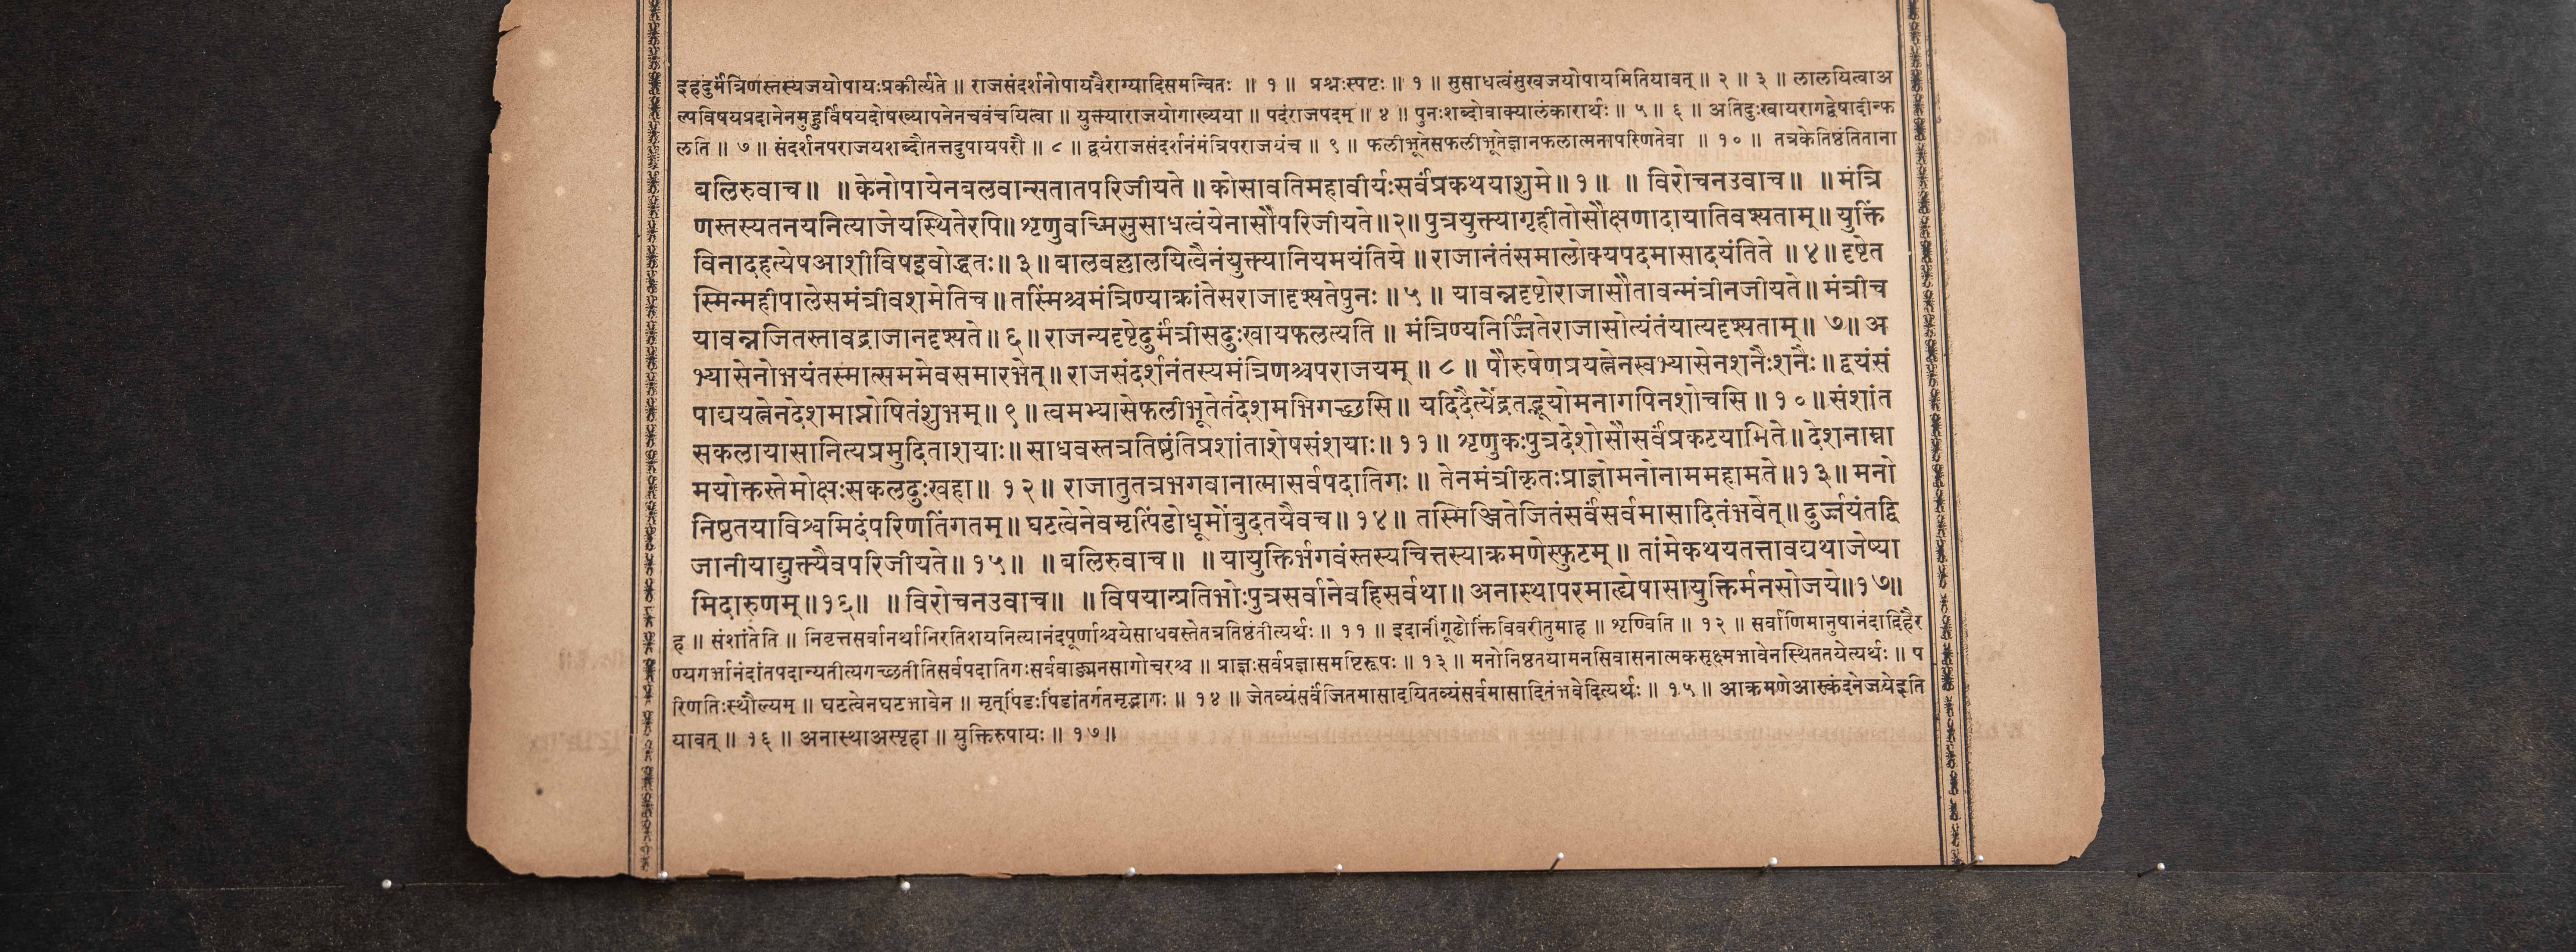 इहदुर्मंत्रिणस्तस्यजयोपायःप्रकीर्त्यते ॥ राजसंदर्शनोपायवैराग्यादिसमन्वितः ॥ १ ॥ प्रश्नःस्पष्टः ॥ १ ॥ सुसाधत्वंसुखजयोपायमितियावत् ॥ २ ॥ ३ ॥ लालयित्वाअ
ल्पविषयप्रदानेनमुहुर्विषयदोषख्यापनेनचवंचयित्वा ॥ युक्त्याराजयोगाख्यया ॥ पदंराजपदम् ॥ ४ ॥ पुनःशब्दोवाक्यालंकारार्थः ॥ ५ ॥ ६ ॥ अतिदुःखायरागद्वेषादीन्फ
लति ॥ ७ ॥ संदर्शनपराजयशब्दौतत्तदुपायपरौ ॥ ८ ॥ द्वयंराजसंदर्शनंमंत्रिपराजयंच ॥ ९ ॥ फलीभूतेसफलीभूतेज्ञानफलात्मनापरिणतेवा ॥ १० ॥ तत्रकेतिष्ठंतिताना
बलिरुवाच ॥ ॥ केनोपायेनबलवान्सतातपरिजीयते ॥ कोसावतिमहावीर्यःसर्वंप्रकथयाशुमे ॥ १ ॥ ॥ विरोचनउवाच ॥ ॥ मंत्रि
णस्तस्यतनयनित्याजेयस्थितेरपि ॥ शृणुवच्मिसुसाधत्वंयेनासौपरिजीयते ॥ २ ॥ पुत्रयुक्त्यागृहीतोसौक्षणादायातिवश्यताम् ॥ युक्तिं
विनादहत्येषआशीविषइवोद्धतः ॥ ३ ॥ बालवल्लालयित्वैनंयुक्त्यानियमयंतिये ॥ राजानंतंसमालोक्यपदमासादयंतिते ॥ ४ ॥ दृष्टेत
स्मिन्महीपालेसमंत्रीवशमेतिच ॥ तस्मिंश्चमंत्रिण्याक्रांतेसराजादृश्यतेपुनः ॥ ५ ॥ यावन्नदृष्टोराजासौतावन्मंत्रीनजीयते ॥ मंत्रीच
यावन्नजितस्तावद्राजानदृश्यते ॥ ६ ॥ राजन्यदृष्टेदुर्मंत्रीसदुःखायफलत्यति ॥ मंत्रिण्यनिर्ज्जितेराजासोत्यंतंयात्यदृश्यताम् ॥ ७ ॥ अ
भ्यासेनोभयंतस्मात्सममेवसमारभेत् ॥ राजसंदर्शनंतस्यमंत्रिणश्चपराजयम् ॥ ८ ॥ पौरुषेणप्रयत्नेनस्वभ्यासेनशनैःशनैः ॥ द्वयंसं
पाद्ययत्नेनदेशमाप्नोषितंशुभम् ॥ ९ ॥ त्वमभ्यासेफलीभूतेतंदेशमभिगच्छसि ॥ यदिदैत्येंद्रतद्भूयोमनागपिनशोचसि ॥ १० ॥ संशांत
सकलायासानित्यप्रमुदिताशयाः ॥ साधवस्तत्रतिष्ठंतिप्रशांताशेषसंशयाः ॥ ११ ॥ शृणुकःपुत्रदेशोसौसर्वंप्रकटयामिते ॥ देशनाम्ना
मयोक्तस्तेमोक्षःसकलदुःखहा ॥ १२ ॥ राजातुतत्रभगवानात्मासर्वपदातिगः ॥ तेनमंत्रीकृतःप्राज्ञोमनोनाममहामते ॥ १३ ॥ मनो
निष्ठतयाविश्वमिदंपरिणतिंगतम् ॥ घटत्वेनेवमृत्पिंडोधूमोंबुदतयैवच ॥ १४ ॥ तस्मिञ्जितेजितंसर्वंसर्वमासादितंभवेत् ॥ दुर्ज्जयंतद्वि
जानीयाद्युक्त्यैवपरिजीयते ॥ १५ ॥ ॥ बलिरुवाच ॥ ॥ यायुक्तिर्भगवंस्तस्यचित्तस्याक्रमणेस्फुटम् ॥ तांमेकथयतत्तावद्यथाजेष्या
मिदारुणम् ॥ १६ ॥ ॥ विरोचनउवाच ॥ ॥ विषयान्प्रतिभोःपुत्रसर्वानेवहिसर्वथा ॥ अनास्थापरमाह्येषासायुक्तिर्मनसोजये ॥ १७ ॥
ह ॥ संशांतेति ॥ निवृत्तसर्वानर्थानिरतिशयनित्यानंदपूर्णाश्चयेसाधवस्तेतत्रतिष्ठंतीत्यर्थः ॥ ११ ॥ इदानींगूढोक्तिंविवरीतुमाह ॥ शृण्विति ॥ १२ ॥ सर्वाणिमानुषानंदादिहैर
ण्यगर्भानंदांतपदान्यतीत्यगच्छतीतिसर्वपदातिगःसर्ववाङ्मनसागोचरश्च ॥ प्राज्ञःसर्वप्रज्ञासमष्टिरूपः ॥ १३ ॥ मनोनिष्ठतयामनसिवासनात्मकसूक्ष्मभावेनस्थिततयेत्यर्थः ॥ प
रिणतिःस्थौल्यम् ॥ घटत्वेनघटभावेन ॥ मृत्पिंडःपिंडांतर्गतमृद्भागः ॥ १४ ॥ जेतव्यंसर्वंजितमासादयितव्यंसर्वमासादितंभवेदित्यर्थः ॥ १५ ॥ आक्रमणेआस्कंदनेजयेइति
यावत् ॥ १६ ॥ अनास्थाअस्पृहा ॥ युक्तिरुपायः ॥ १७ ॥